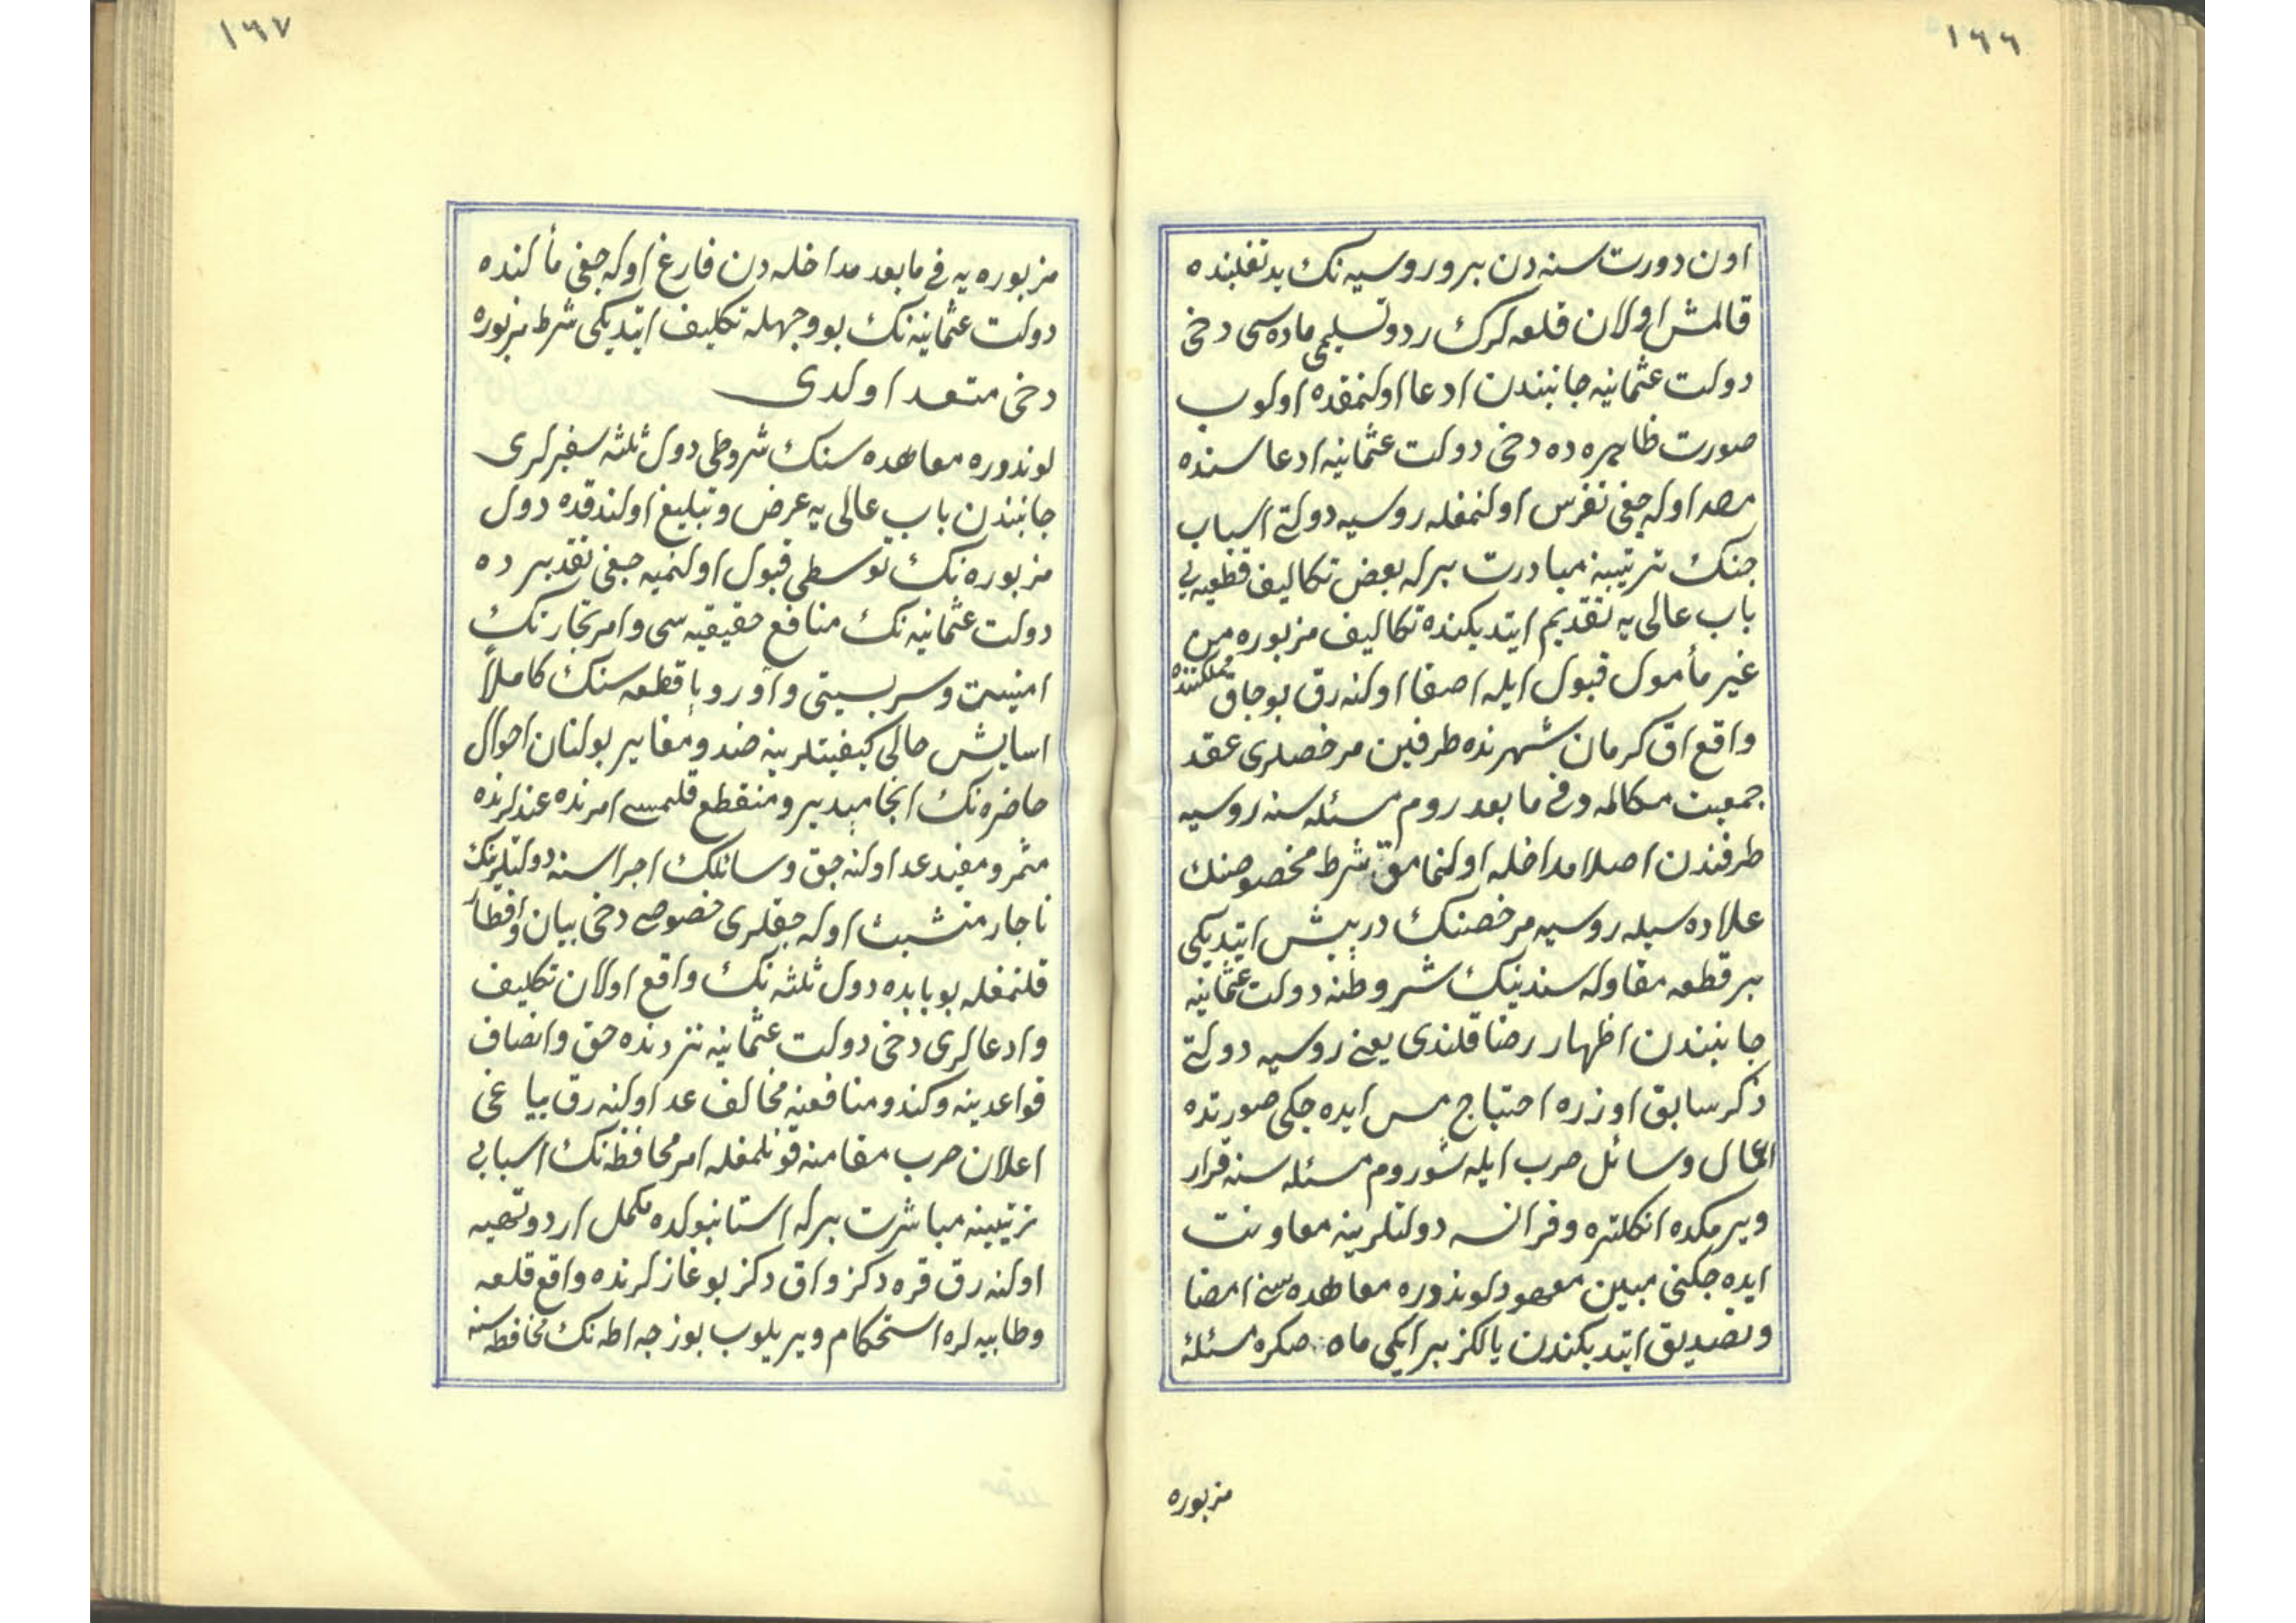 ١٦٦
اون دورت سنه دن برو روسیه نك ید تغلبنده
قالمش اولان قلعه لرك رد و تسلیمی ماده سی دخی
دولت عثمانیه جانبندن ادعا اولنمقده اولوب
صورت ظاهره ده دخی دولت عثمانیه ادعاسنده
مصر اوله جغی تفرس اولنمغله روسیه دولتی اسباب
جنك ترتیبنه مبادرت برله بعض تكالیف قطعیه یی
باب عالی یه تقدیم ایتدیكنده تكالیف مزبوره من
غیر مأمول قبول ایله اصغا اولنه رق بوجاق مملكتنده
واقع اق كرمان شهرنده طرفین مرخصلری عقد
جمعیت مكالمه و فی مابعد روم مسئله سنه روسیه
طرفندن اصلا مداخله اولنمامق شرط مخصوصنك
علاوه سیله روسیه مرخصنك درپیش ایتدیكی
بر قطعه مقاوله سندینك شروطنه دولت عثمانیه
جانبندن اظهار رضا قلندی یعنی روسیه دولتی
ذكر سابق اوزره احتیاج مس ایده جكی صورتده
اعمال وسائل حرب ایله شو روم مسئله سنه قرار
ویرمكده انكلتره و فرانسه دولتلرینه معاونت
ایده جكنی مبین معهود لوندوره معاهده سنی امضا
و تصدیق ایتدیكندن یالكز بر ایكی ماه صكره مسئلهٔ
مزبوره
١٦٧
مزبوره یه فی مابعد مداخله دن فارغ اوله جغی مألنده
دولت عثمانیه نك بو وجهله تكلیف ایتدیكی شرط مزبوره
دخی متعهد اولدی
لوندوره معاهده سنك شروطی دول ثلثه سفیرلری
جانبندن باب عالی یه عرض و تبلیغ اولندقده دول
مزبوره نك توسطی قبول اولنمیه جغی تقدیرده
دولت عثمانیه نك منافع حقیقیه سی و امر تجارتك
امنیت و سربستی و آوروپا قطعه سنك كاملاً
اسایش حالی كیفیتلرینه ضد و مغایر بولنان احوال
حاضره نك انجامپذیر و منقطع قلمسی امرنده عندلرنده
مثمر و مفید عد اولنه جق وسائلك اجراسنه دولتلرینك
ناچار متشبث اوله جقلری خصوصی دخی بیان و اخطار
قلنمغله بو بابده دول ثلثه نك واقع اولان تكلیف
و ادعالری دخی دولت عثمانیه نزدنده حق و انصاف
قواعدینه و كندو منافعنه مخالف عد اولنه رق بیاغی
اعلان حرب مقامنه قونلمغله امر محافظه نك اسبابی
ترتیبنه مباشرت برله استانبولده مكمل اردو تهیه
اولنه رق قره دكز و اق دكز بوغازلرنده واقع قلعه
و طابیه لره استحكام ویریلوب بوزجه اطه نك محافظه سنه